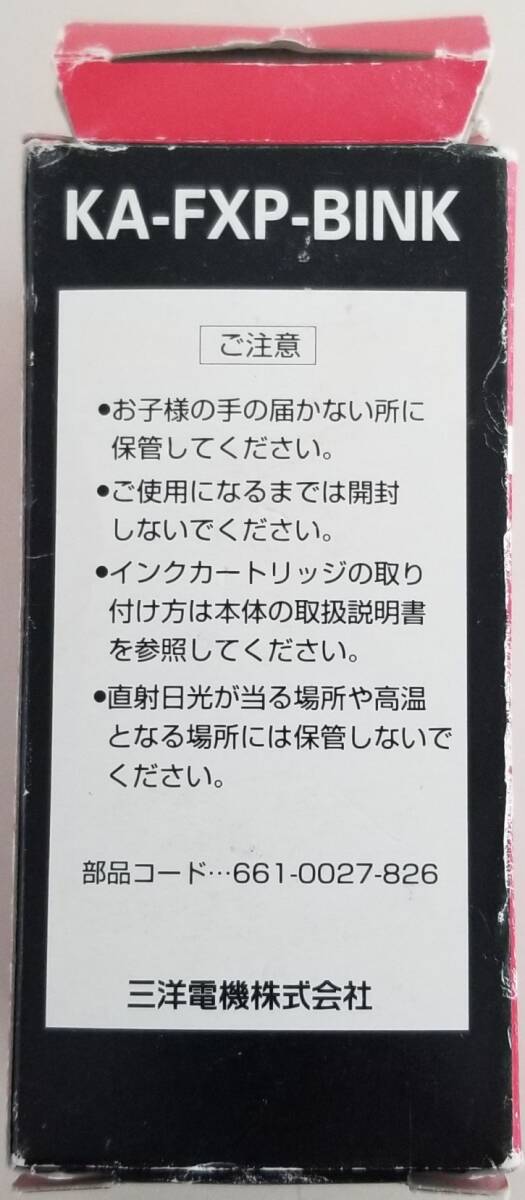 KA-FXP-BINK
ご注意
●お子様の手の届かない所に
保管してください。
●ご使用になるまでは開封
しないでください。
●インクカートリッジの取り
付け方は本体の取扱説明書
を参照してください。
●直射日光が当る場所や高温
となる場所には保管しないで
ください。
部品コード…661-0027-826
三洋電機株式会社